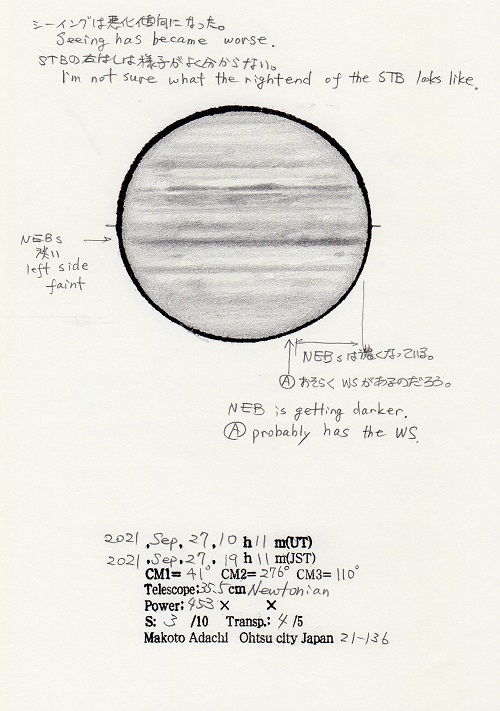 シーイングは悪化傾向になった。
Seeing has became worse.
STBの右はしは様子がよく分からない。
I'm not sure what the rightend of the STB looks like.
NEBs
淡い
left side
faint
NEBsは濃くなっている。
Ⓐ おそらく WSがあるのだろう。
NEB is getting darker.
Ⓐ probably has the WS.
2021 , Sep, 27, 10 h 11 m(UT)
2021 , Sep, 27, 19 h 11 m(JST)
CM1= 41° CM2= 276° CM3= 110°
Telescope; 35.5 cm Newtonian
Power; 453 × ×
S: 3 /10 Transp.; 4 /5
Makoto Adachi Ohtsu city Japan 21-136